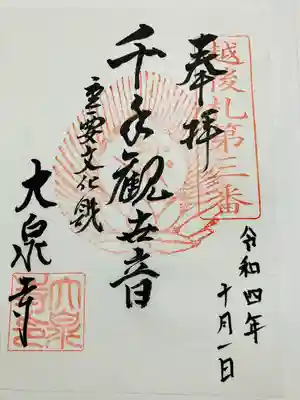 越後札第三番
奉拝
令和四年
十月一日
千手観世音
重要文化財
大泉寺